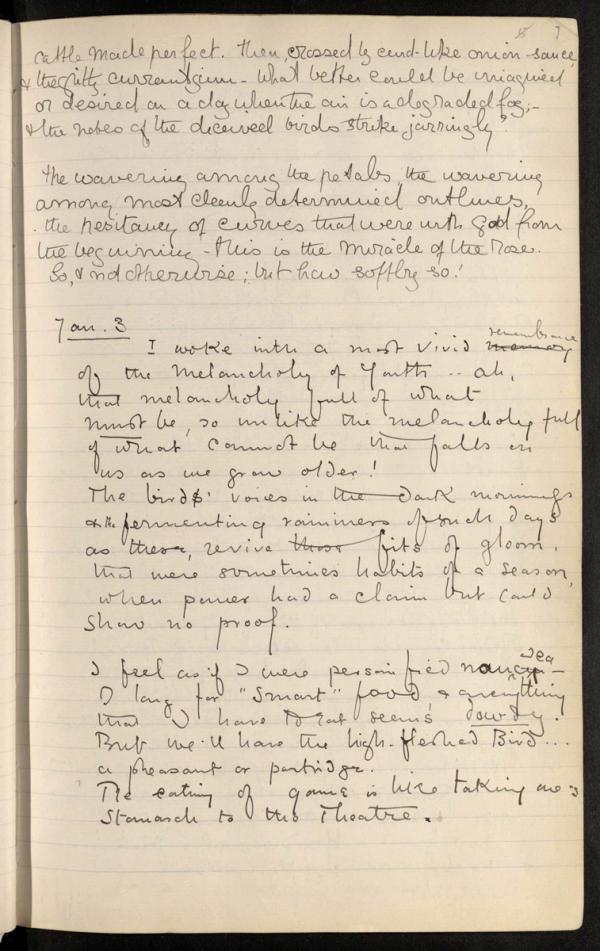 7
cattle made perfect. Then, crossed by curd-like onion-sauce,
& the gritty currant gum - what better could be imagined
or desired on a day when the air is a degraded fog,-
& the notes of the deceived birds strike jarringly?
The wavering among the petals, the wavering
among most cleanly determined outlines,
the hesitancy of curves that were with God from
the beginning - this is the miracle of the rose.
So, & not otherwise; but how softly so!
Jan. 3
I woke into a most vivid memory remembrance
of the melancholy of Youth -- ah,
that melancholy full of what
must be, so unlike the melancholy full
of what cannot be that falls on
us as we grow older!
The birds' voices in the dark mornings
& the fermenting raininess of such days
as these, revive those fits of gloom,
that were sometimes habits of a season,
when power had a claim but could
show no proof.
I feel as if I were personified nausea -
I long for "Smart" food & anything
that I have to eat seems dowdy.
But we'll have the high-fleshed Bird...
a pheasant or partridge.
The eating of game is like taking one's
Stomach to the Theatre.